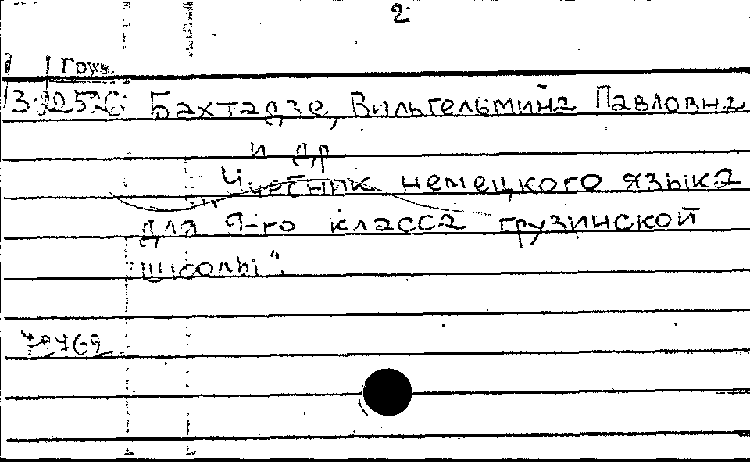 2
Груз.
Бахтадзе, Вильгельмина Павловна
и др
Учебник немецкого языка
для 9-го класса грузинской
школы".